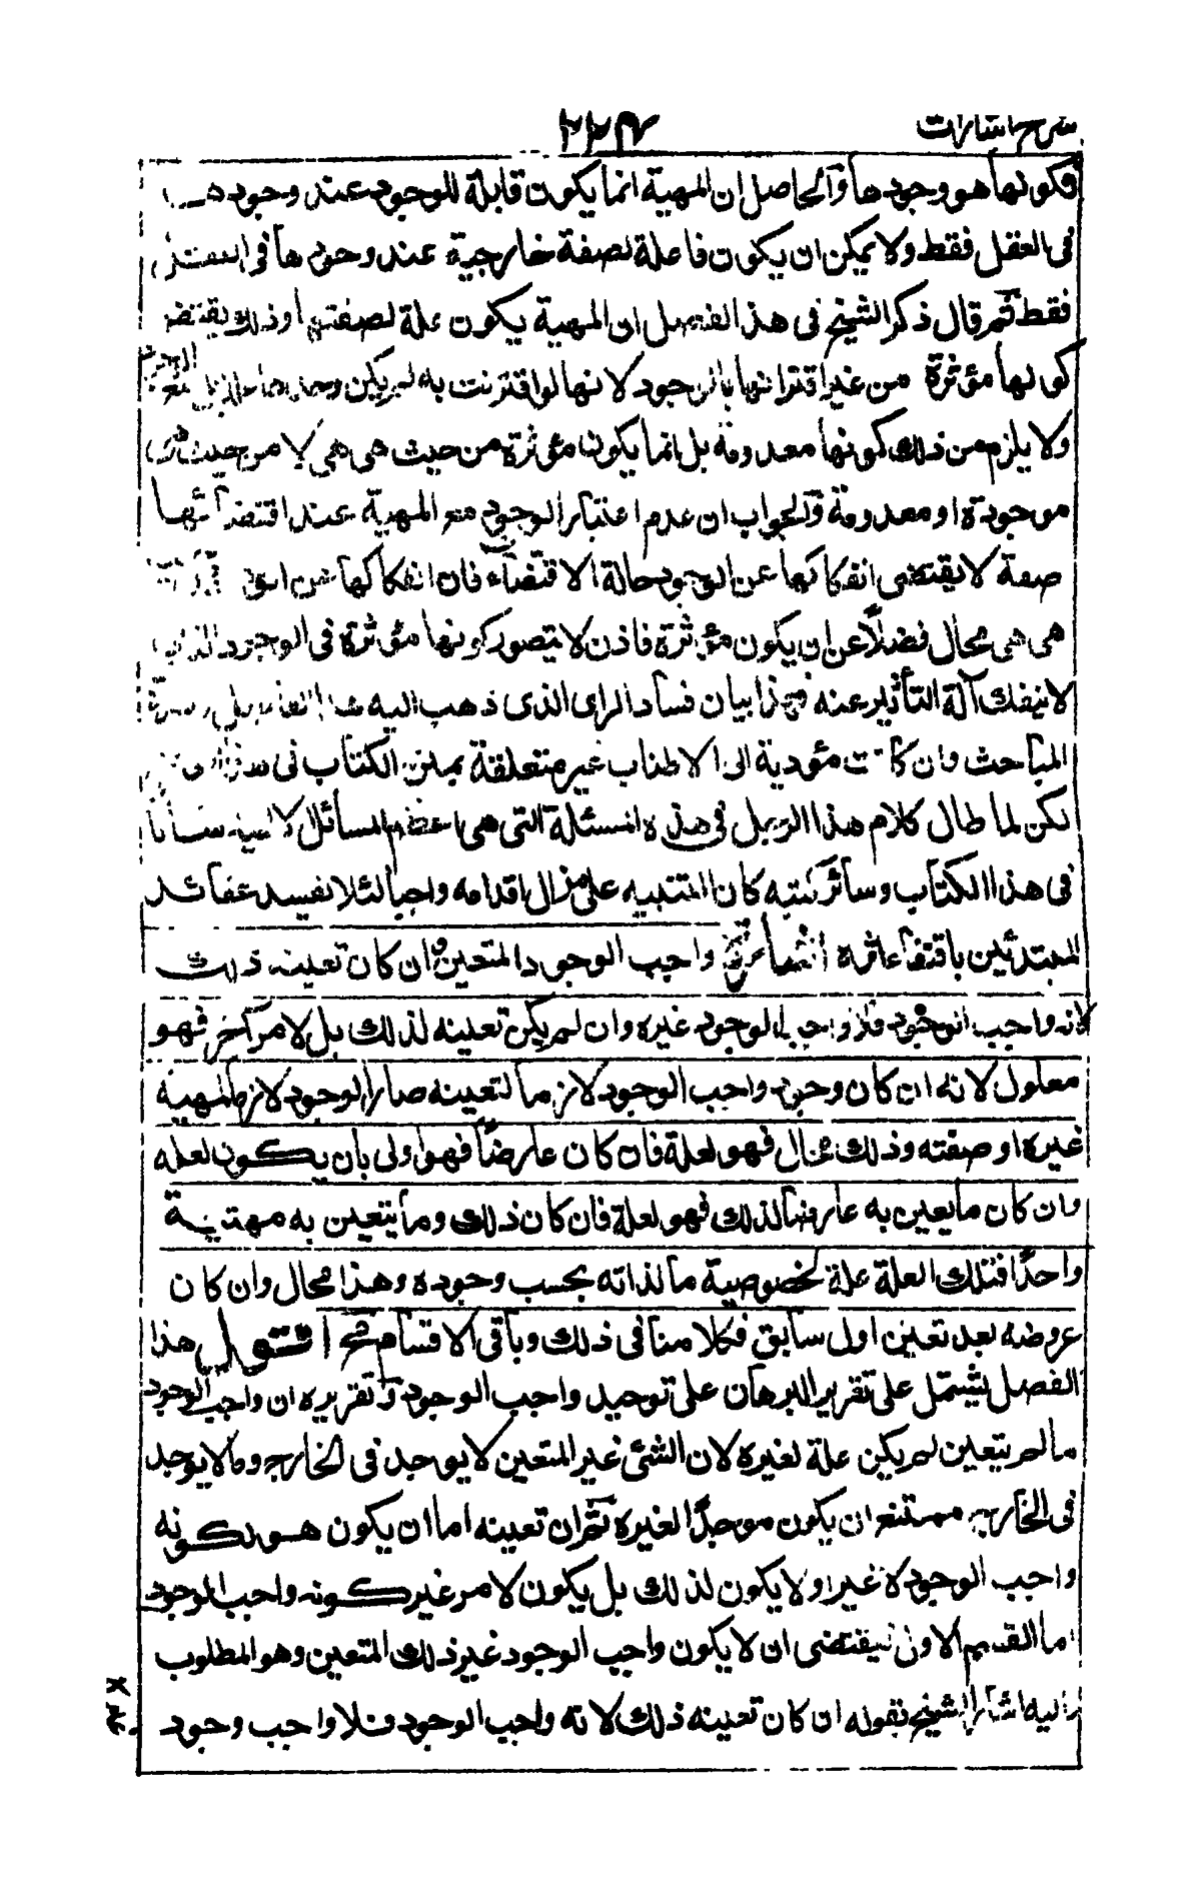 شرح اشارات
۲۲۴
فكونها هو وجودها والحاصل ان المهية انما يكون قابلة للوجود عند وجودها
فى العقل فقط ولا يمكن ان يكون فاعلة لصفة خارجية عند وجودها فى العقل
فقط ثم قال ذكر الشيخ فى هذا الفصل ان المهية يكون علة لصفتها وذلك يقتضى
كونها مؤثرة من غير اقترانها بالوجود لانها لو اقترنت به لم يكن وحدها
ولا يلزم من ذلك كونها معدومة بل انما يكون مؤثرة من حيث هى هى لا من حيث هى
موجودة او معدومة والجواب ان عدم اعتبار الوجود مع المهية عند اقتضائها
صفة لا يقتضى انفكاكها عن الوجود حالة الاقتضاء فان انفكاكها عن
هى هى محال فضلا عن ان يكون مؤثرة فاذن لا يتصور كونها مؤثرة فى الوجود الذى
لا ينفك آلة التأثير عنه فهذا بيان فساد الراى الذى ذهب اليه هذا الفاضل
المباحث وان كانت مؤدية الى الاطناب غير متعلقة بمتن الكتاب فى
لكن لما طال كلام هذا الرجل فى هذه المسئلة التى هى اعظم المسائل الالهية
فى هذا الكتاب وسائر كتبه كان التنبيه على مزال اقدامه واجبا لئلا نفسد عقائد
المبتدئين باقتفاء اثره اشارة واجب الوجود المتعين ان كان تعينه ذلك
لانه واجب الوجود فلا واجب الوجود غيره وان لم يكن تعينه لذلك بل لامر آخر فهو
معلول لانه ان كان وجود واجب الوجود لازما لتعينه صار الوجود لازما لمهية
غيره او صفته وذلك محال فهو لعلة فان كان عارضا فهو اولى بان يكون لعلة
وان كان ما يعين به عارضا لذلك فهو لعلة فان كان ذلك وما يتعين به مهية
واحدا فتلك العلة علة لخصوصية ما لذاته يجب وجوده وهذا محال وان كان
عروضه بعد تعين اول سابق فكلامنا فى ذلك وباقى الاقسام محال اقول هذا
الفصل يشتمل على تقرير البرهان على توحيد واجب الوجود وتقريره ان واجب الوجود
ما لم يتعين لم يكن علة لغيره لان الشئ غير المتعين لا يوجد فى الخارج وما لا يوجد
فى الخارج ممتنع ان يكون موجدا لغيره ثم ان تعينه اما ان يكون هو لكونه
واجب الوجود لا غير او لا يكون لذلك بل يكون لامر غير كونه واجب الوجود
اما القسم الاول فيقتضى ان لا يكون واجب الوجود غير ذلك المتعين وهو المطلوب
واليه اشار الشيخ بقوله ان كان تعينه ذلك لانه واجب الوجود فلا واجب وجود